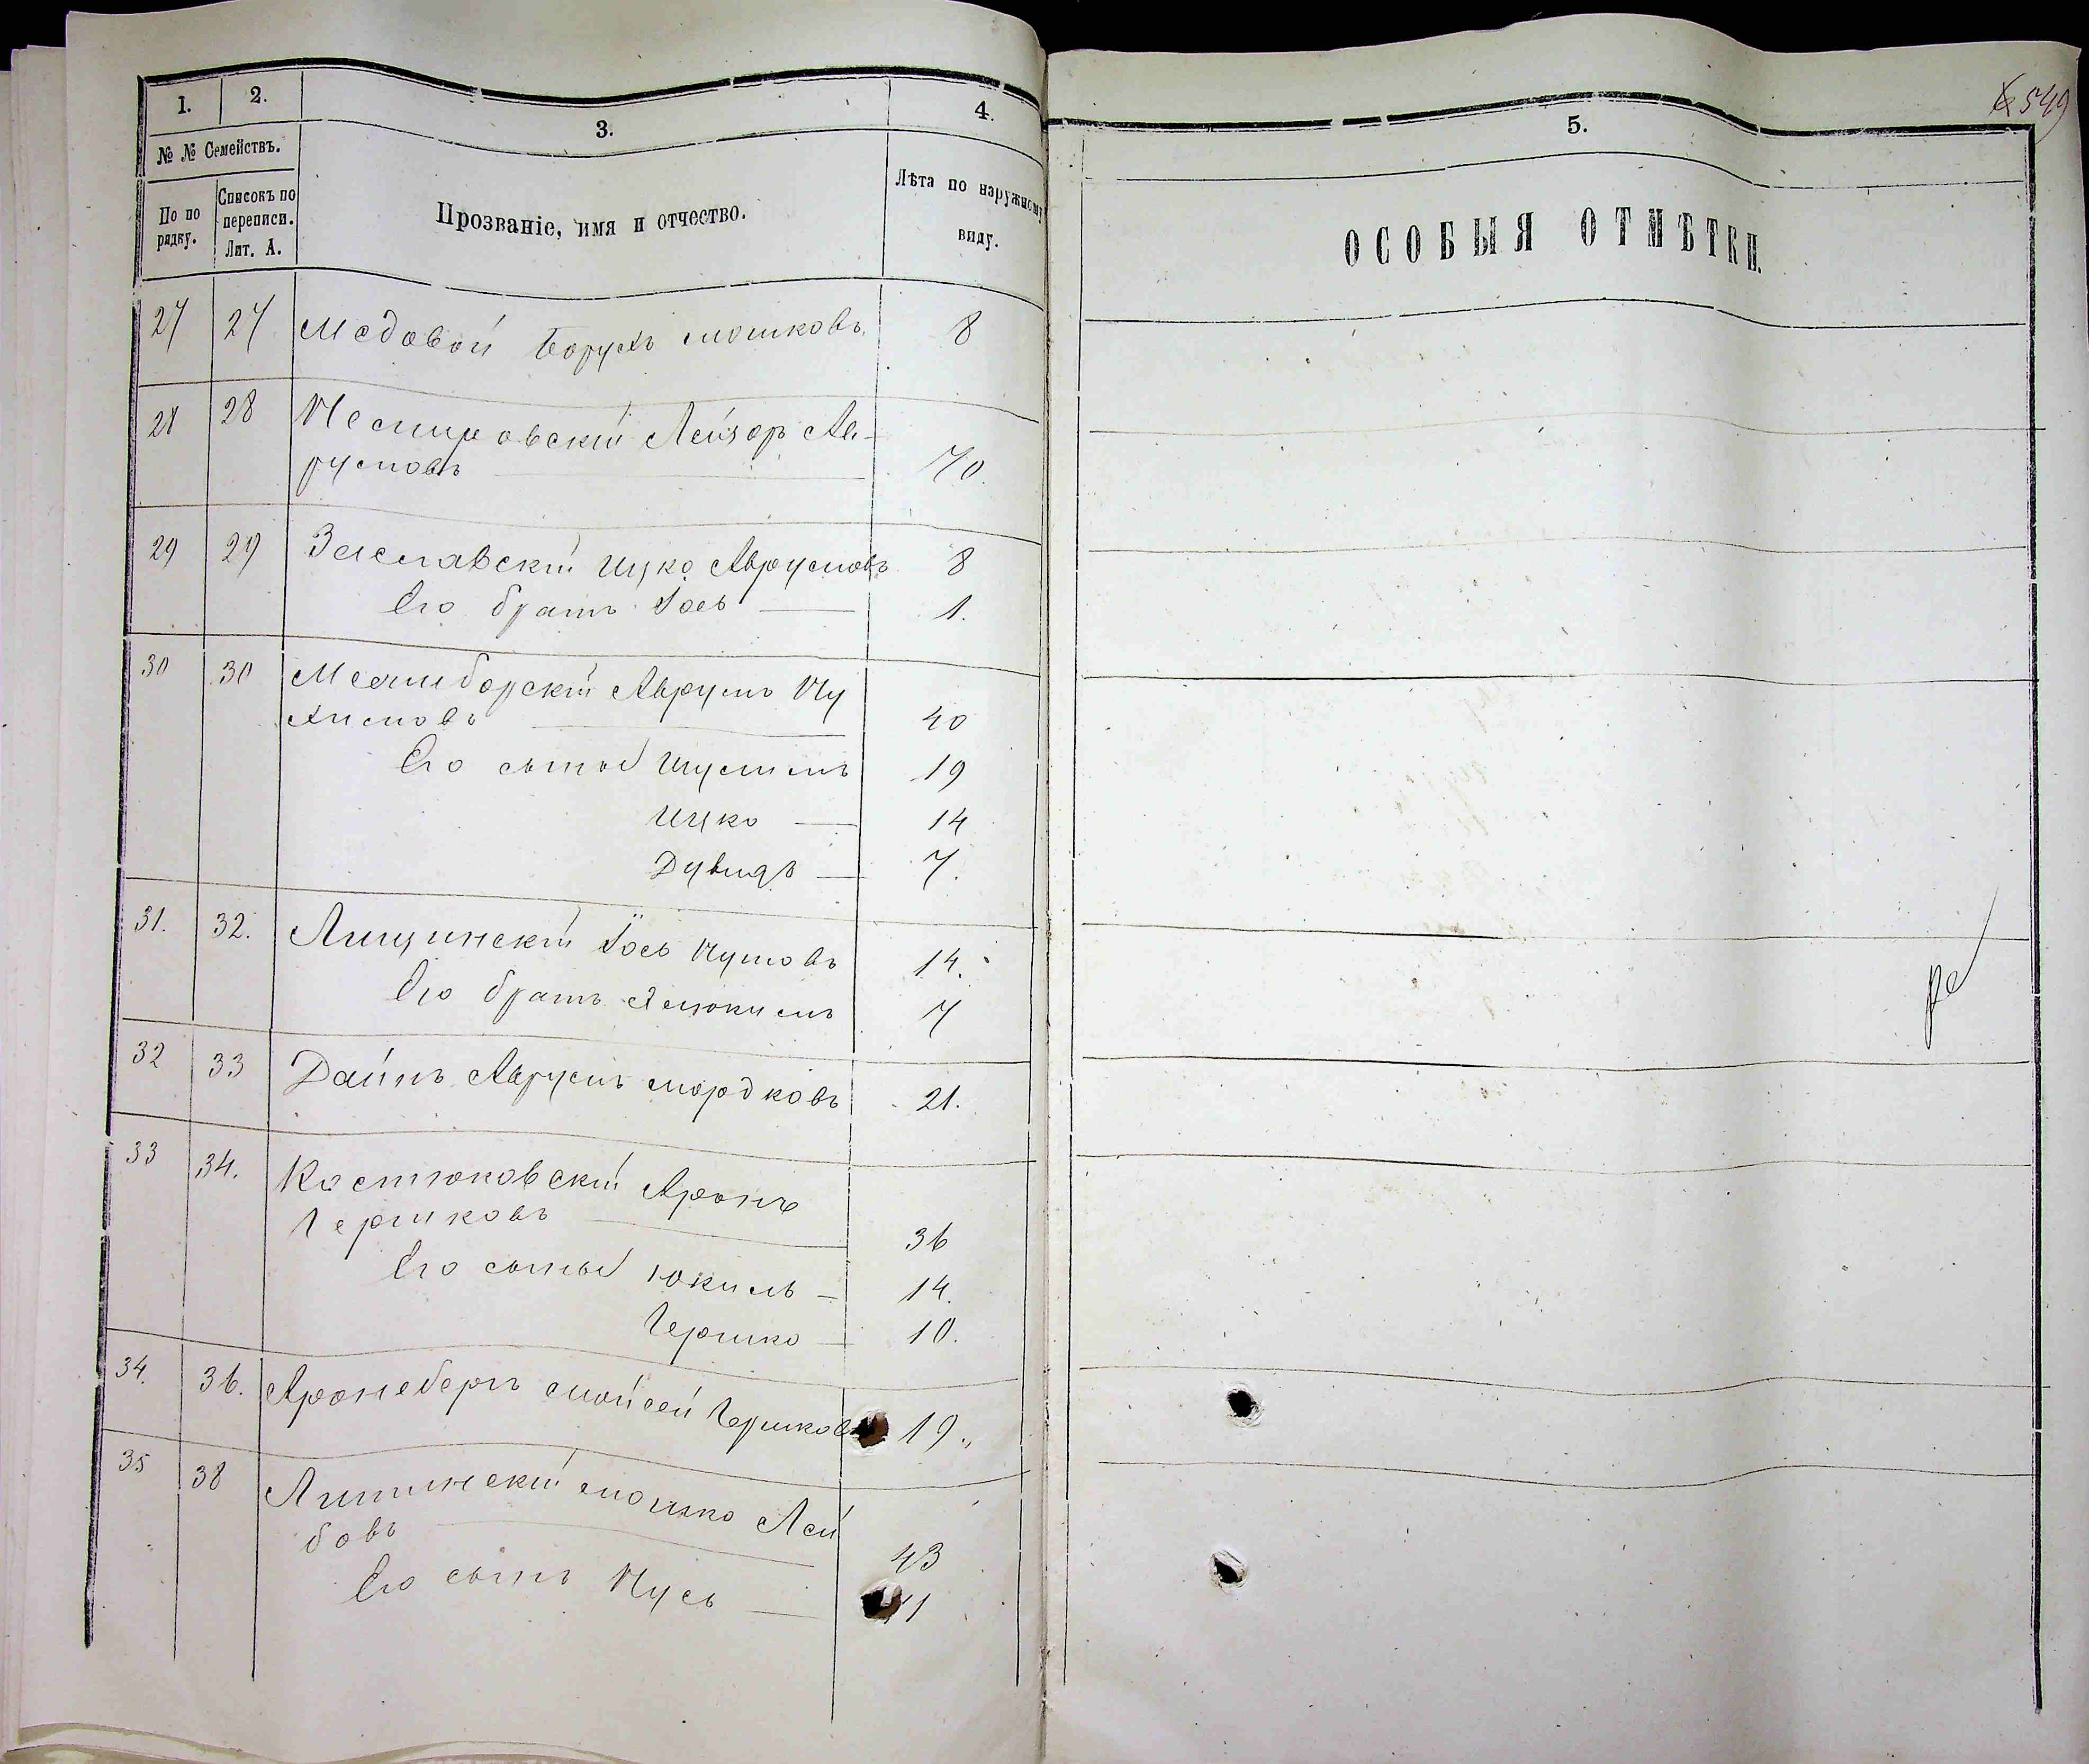 549
1.
2.
3.
4.
5.
№ № Семействъ.
По по
рядку.
Списокъ по
переписи.
Лит. А.
Прозваніе, имя и отчество.
Лѣта по наружному
виду.
ОСОБЫЯ ОТМѢТКИ.
27 27 Медовой Борухъ Мошковъ 8
28 28 Немировскій Лейзоръ Ав-
румовъ 70.
29 29 Заславскій Ицко Аврумовъ 8
Его братъ Іось 1.
30 30 Межиборскій Аврумъ Ну
химовъ 40
Его сыновья 19
Ицко 14
Дувидъ 7.
31. 32. Лищинскій Іось 14.
Его братъ 7
32 33 Даинъ Аврумъ Мордковъ 21.
33 34. Костюковскій Аронъ
Гершковъ 36
Его сыновья Юкиль 14.
Гершко 10.
34. 36. Аронебергъ Мойсей Гершковъ 19.
35 38 Липинскій Мошко Лей
бовъ 43
Его сынъ Нусь 11